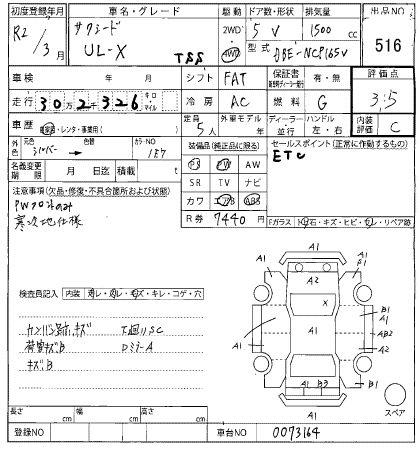 初度登録年月 車名・グレード 駆動 ドア数・形状 排気量 出品NO
R2/3月 サクシード UL-X TSS 2WD 4WD 5 V 1500 cc 516
型式 DBE-NCP165V
車検 年 月 シフト FAT 保証書 有・無 評価点
走行 30万2千326 キロ・マイル 冷房 AC 燃料 G 3.5
車歴 自家用・レンタ・事業用( ) 定員 5人 外車モデル 年 ディーラー・並行 ハンドル 左・右 内装評価 C
外色 元色 シルバー 色替 カラーNO 1E7 装備品(純正品に限る) セールスポイント(正常に作動するもの)
PS PW AW ETC
名義変更期限 月 日迄 積載 t SR TV ナビ
注意事項(欠品・修復・不具合箇所および状態) カワ エアB ABS
PWフロントのみ R券 7440円 Fガラス 飛石・キズ・ヒビ・ ・リペア跡
寒冷地仕様
A1
A1 A2 A1
検査員記入 内装 ・ ・キズ・キレ・コゲ・穴 X B1
A1 A1
カンバン跡、キズ 下廻りSC A1 A2
荷室キズB DミラーA
キズB A1 B3 A1 C
A1 スペア
長さ cm 幅 cm 高さ cm
登録NO 車台NO 0073164